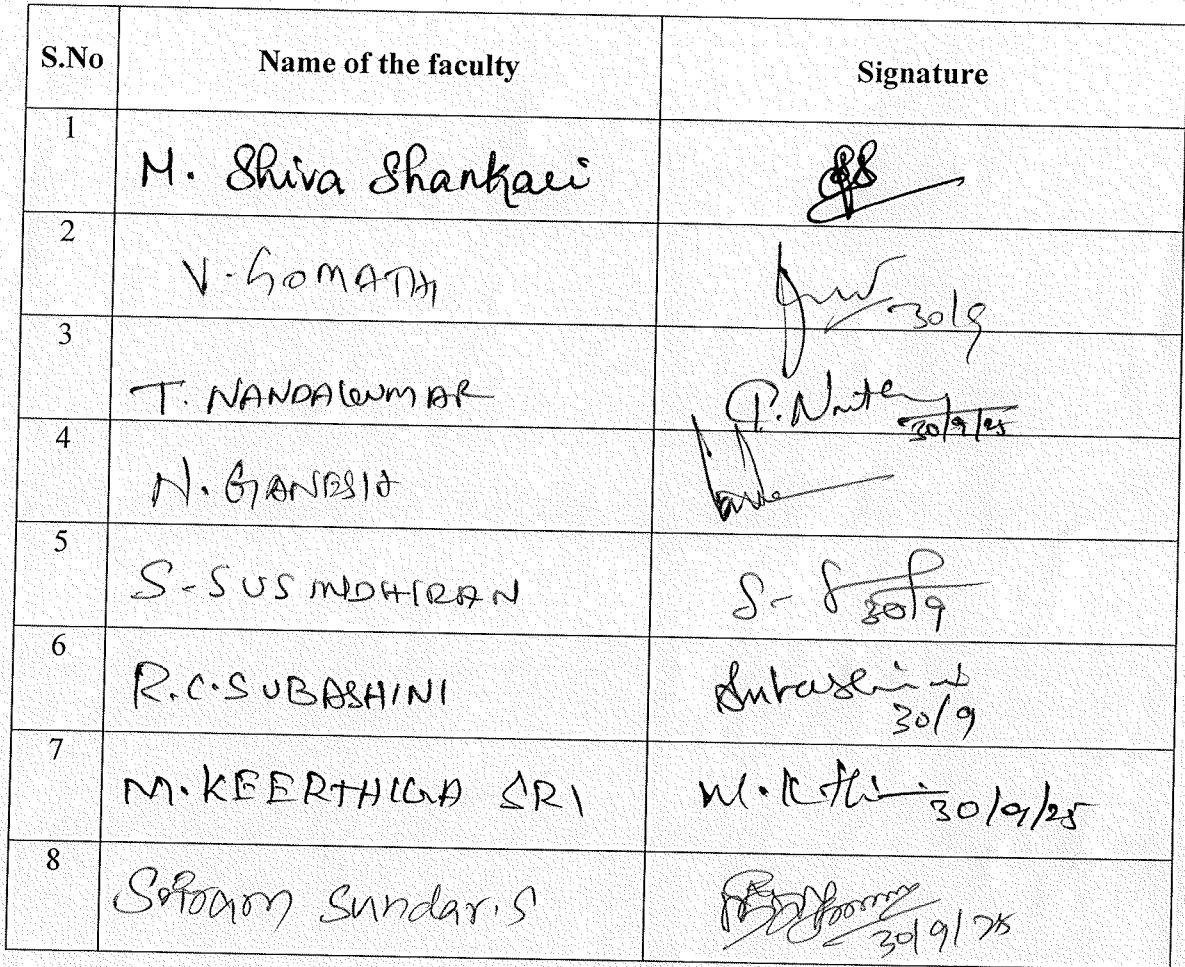 S.No Name of the faculty Signature
1
M. Shiva Shankari
2
V. GOMATHI
30/9
3
T. NANDAKUMAR
30/9/25
4
N. GANESH
5
S-SUSINDHIRAN
S-
30/9
6
R.C.SUBASHINI
Subashini
30/9
7
M.KEERTHIGA SRI
M.K
30/9/25
8
Sriram Sundar.S
30/9/25